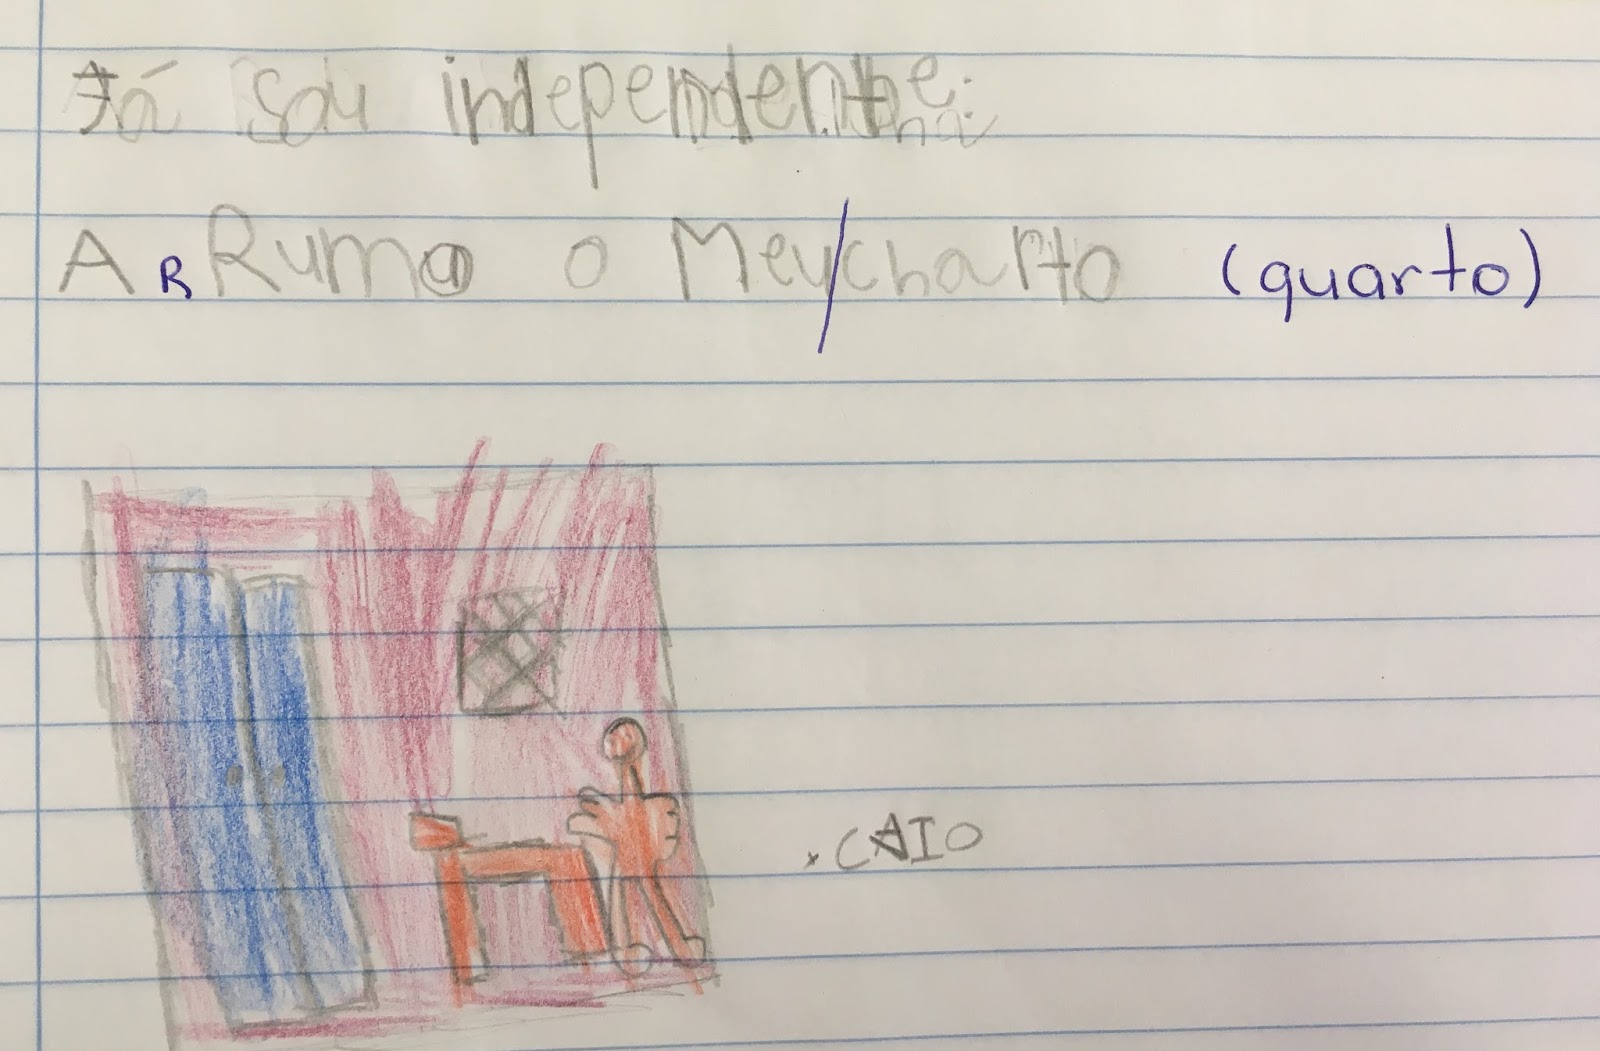 Já sou independente:
ARRumo o Meu/charto (quarto)
CAIO